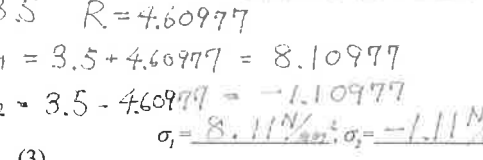 3.5 R = 4.60977
1 = 3.5 + 4.60977 = 8.10977
2 = 3.5 - 4.60977 = -1.10977
σ₁ = 8.11 N/mm² ; σ₂ = -1.11 N
(3)